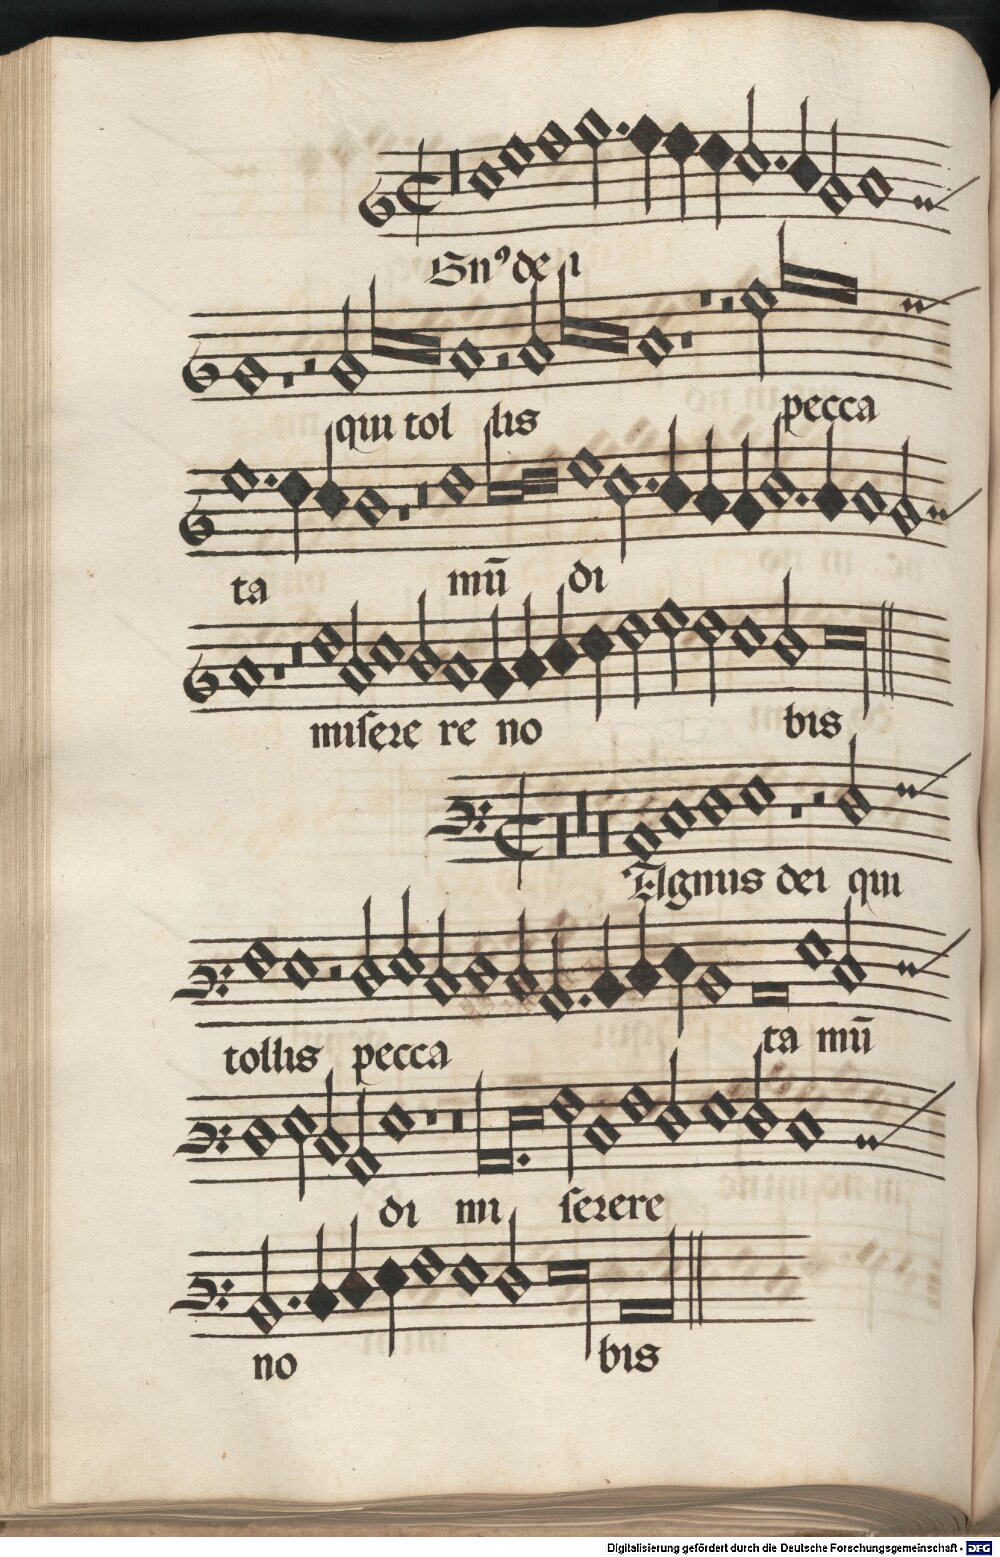 Gn⁹ de i
qui tol lis pecca
ta mū di
miserere re no bis
Agnus dei qui
tollis pecca ta mū
di mi serere
no bis
Digitalisierung gefördert durch die Deutsche Forschungsgemeinschaft - DFG